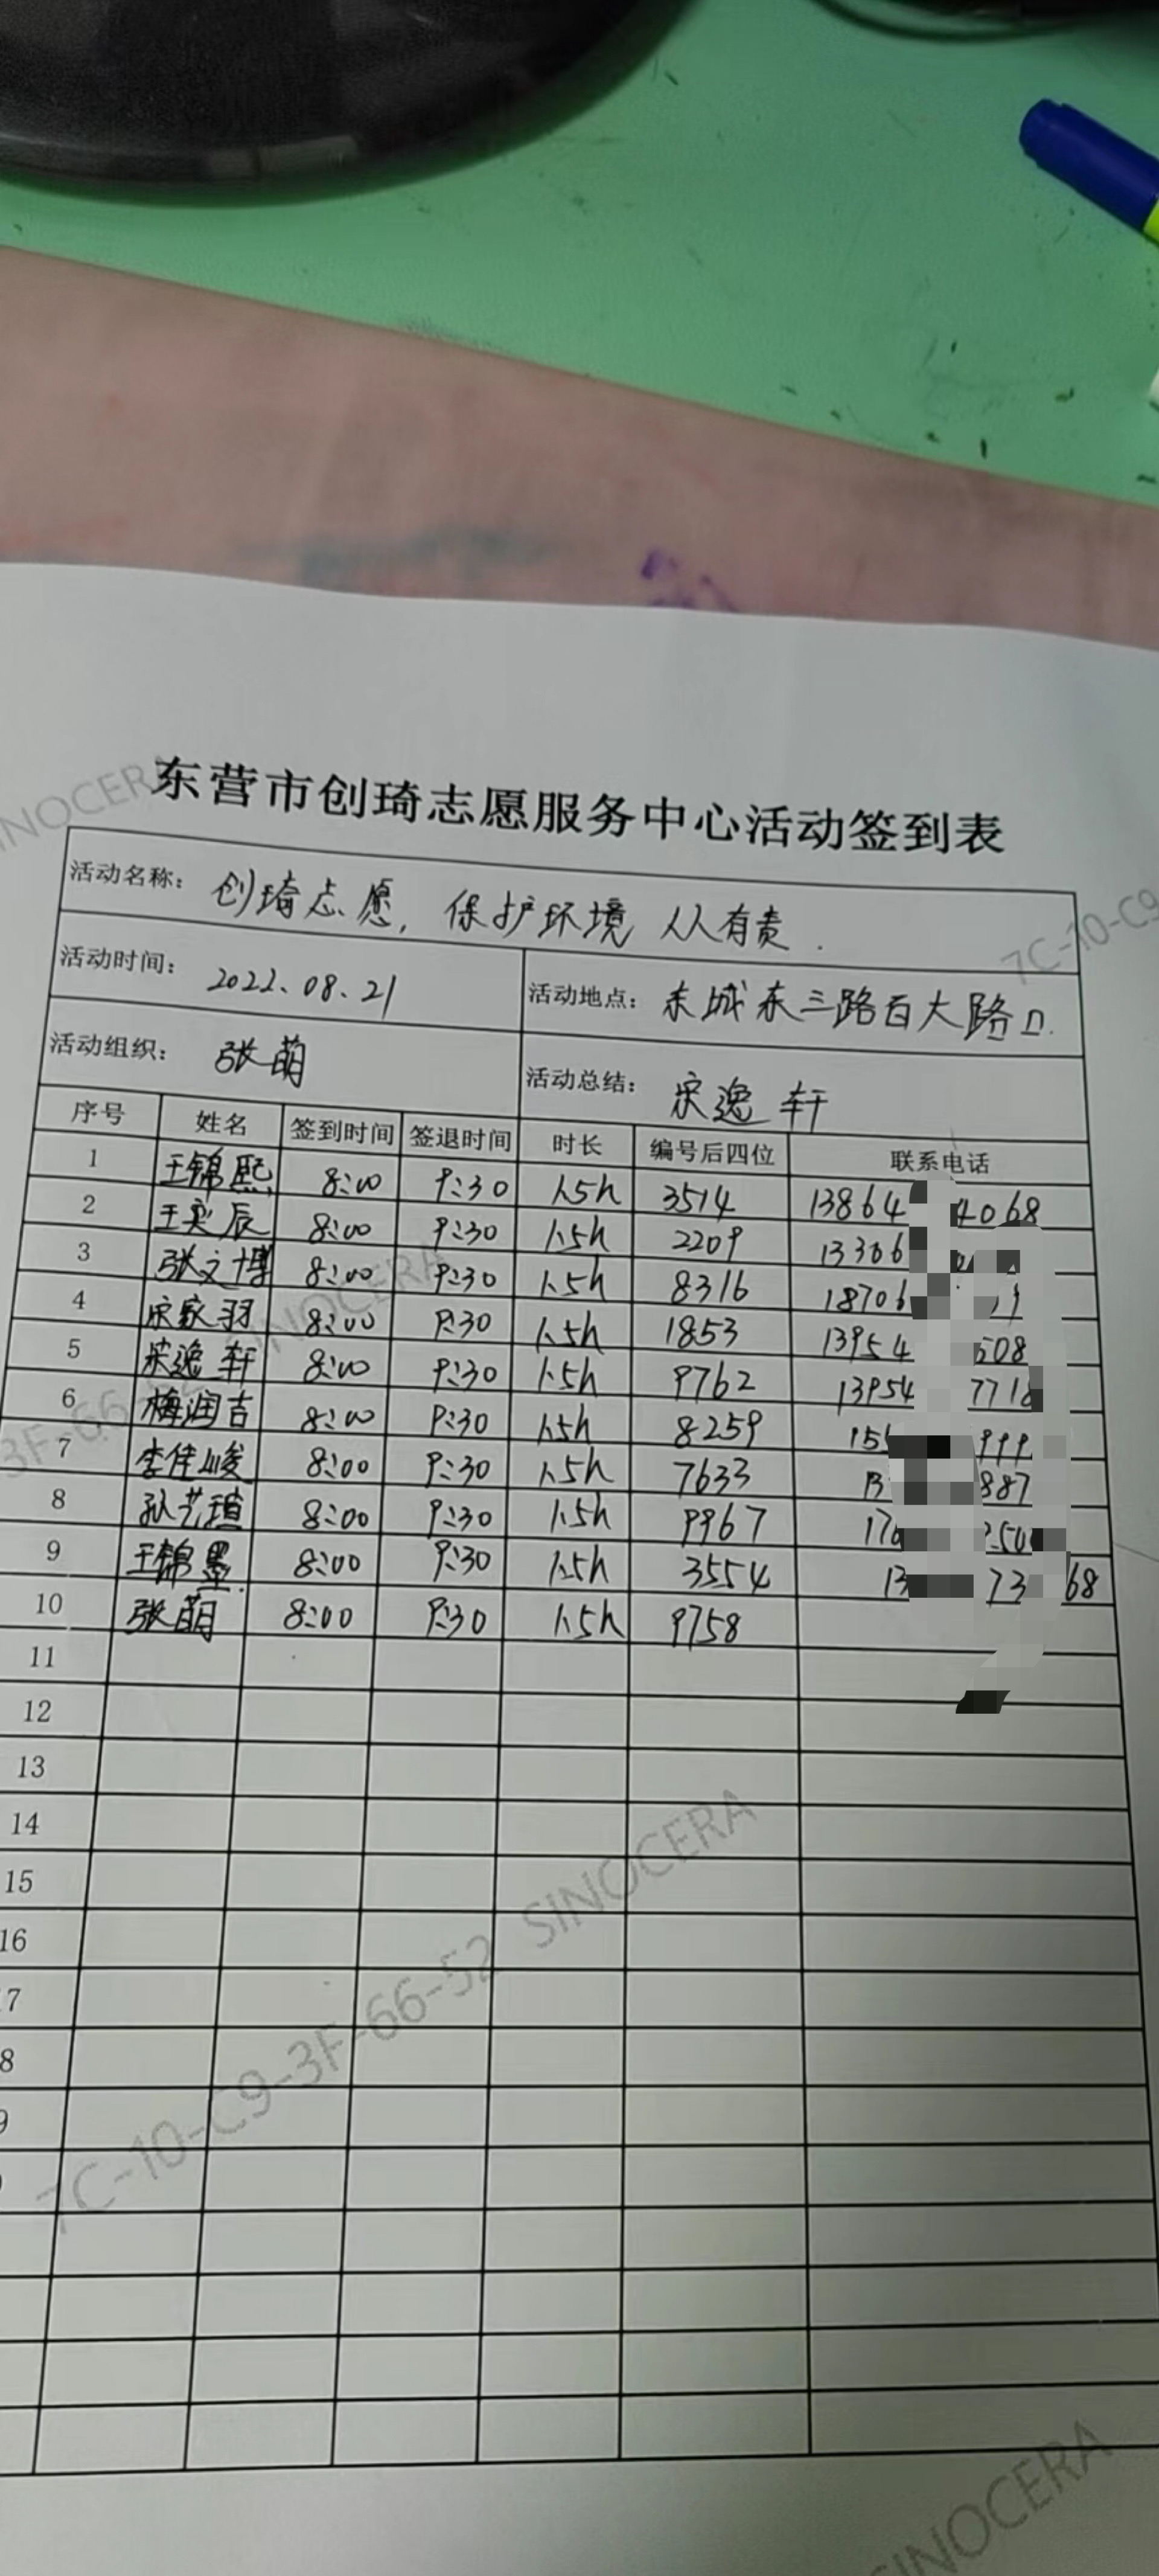 东营市创琦志愿服务中心活动签到表
活动名称: 创琦志愿, 保护环境 人人有责.
活动时间: 2022.08.21 活动地点: 东城东三路百大路口.
活动组织: 张萌 活动总结: 宋逸轩
序号 姓名 签到时间 签退时间 时长 编号后四位 联系电话
1 王锦熙 8:00 9:30 1.5h 3514 13864 4068
2 王奕辰 8:00 9:30 1.5h 2209 13306
3 张文博 8:00 9:30 1.5h 8316 18706
4 宋家羽 8:00 9:30 1.5h 1853 13954 508
5 宋逸轩 8:00 9:30 1.5h 9762 13954 7718
6 梅润吉 8:00 9:30 1.5h 8259 15 999
7 李佳峻 8:00 9:30 1.5h 7633 13 887
8 孙艺瑄 8:00 9:30 1.5h 9967 17
9 王锦墨. 8:00 9:30 1.5h 3554 13 73 68
10 张萌 8:00 9:30 1.5h 9758
11
12
13
14
15
16
7
8
9
SINOCERA
7C-10-C9
SINOCERA
3F-66-52
7C-10-C9-3F-66-52 SINOCERA
SINOCERA